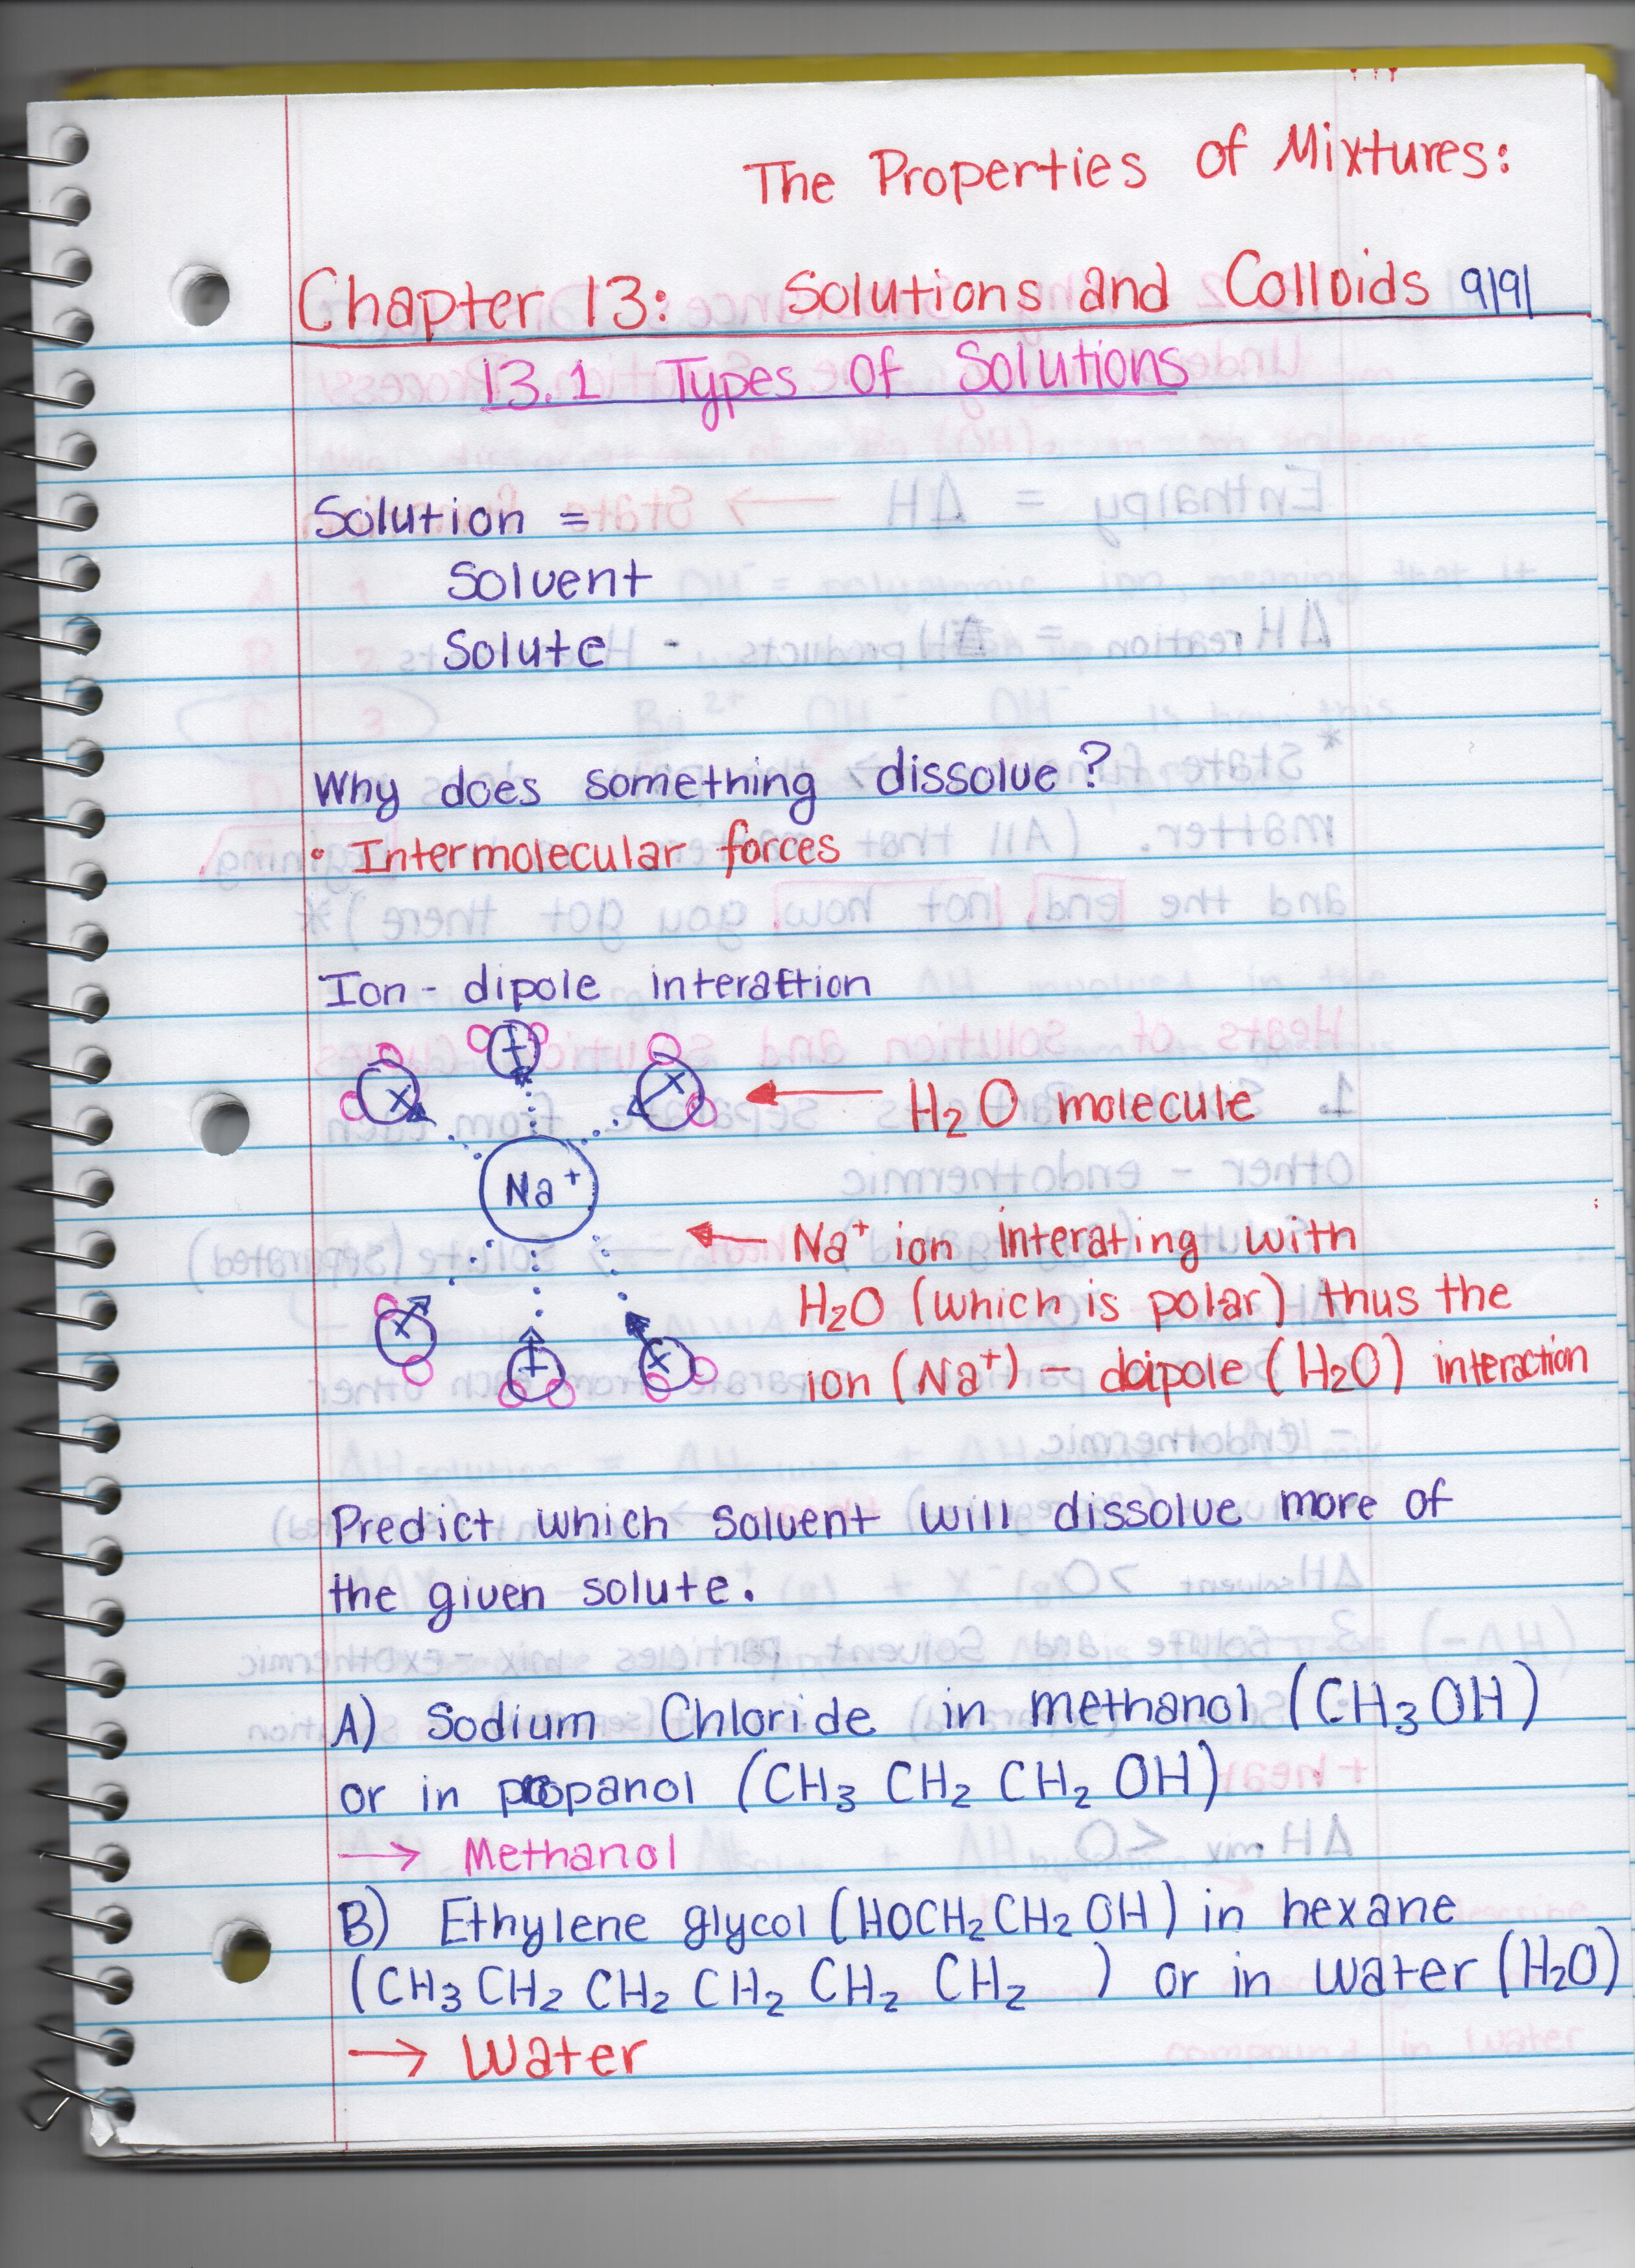 The Properties of Mixtures:
Chapter 13: Solutions and Colloids 9/9/
13.1 Types of Solutions
Solution =
Solvent
Solute
Why does something dissolve?
• Intermolecular forces
Ion - dipole interattion
H2O molecule
Na+
Na+ ion interating with
H2O (which is polar) thus the
ion (Na+) - dipole (H2O) interaction
Predict which solvent will dissolve more of
the given solute.
A) Sodium Chloride in methanol (CH3OH)
or in propanol (CH3 CH2 CH2 OH)
→ Methanol
B) Ethylene glycol (HOCH2CH2OH) in hexane
(CH3 CH2 CH2 CH2 CH2 CH2 ) or in water (H2O)
→ Water